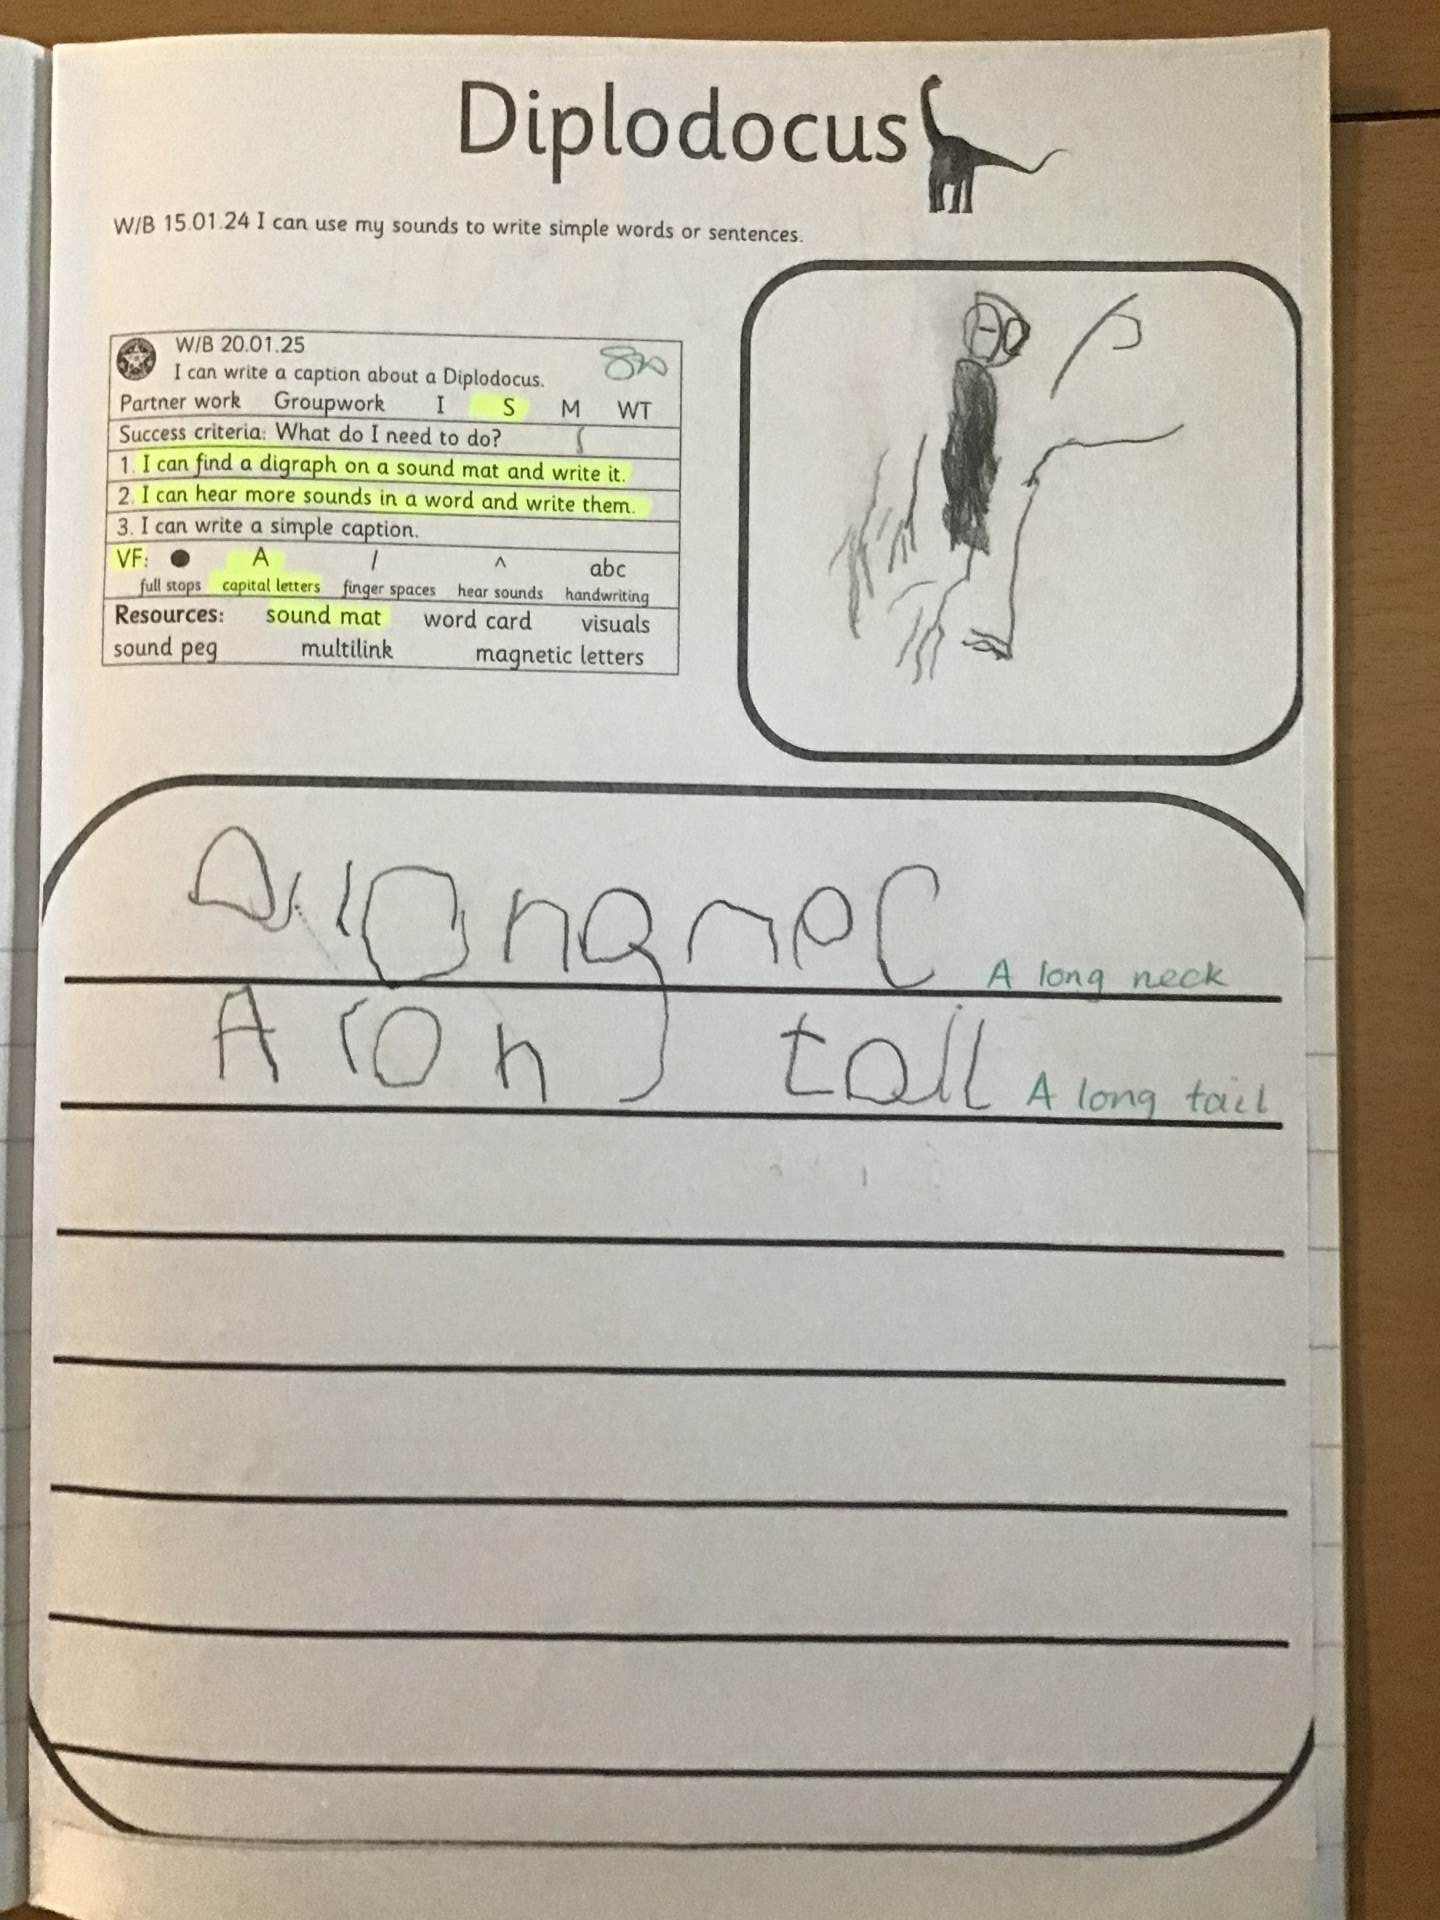 Diplodocus
W/B 15.01.24 I can use my sounds to write simple words or sentences.
W/B 20.01.25
I can write a caption about a Diplodocus.
Partner work Groupwork I S M WT
Success criteria: What do I need to do?
1. I can find a digraph on a sound mat and write it.
2. I can hear more sounds in a word and write them.
3. I can write a simple caption.
VF: ● A / ^ abc
full stops capital letters finger spaces hear sounds handwriting
Resources: sound mat word card visuals
sound peg multilink magnetic letters
longnec A long neck
A long tail A long tail